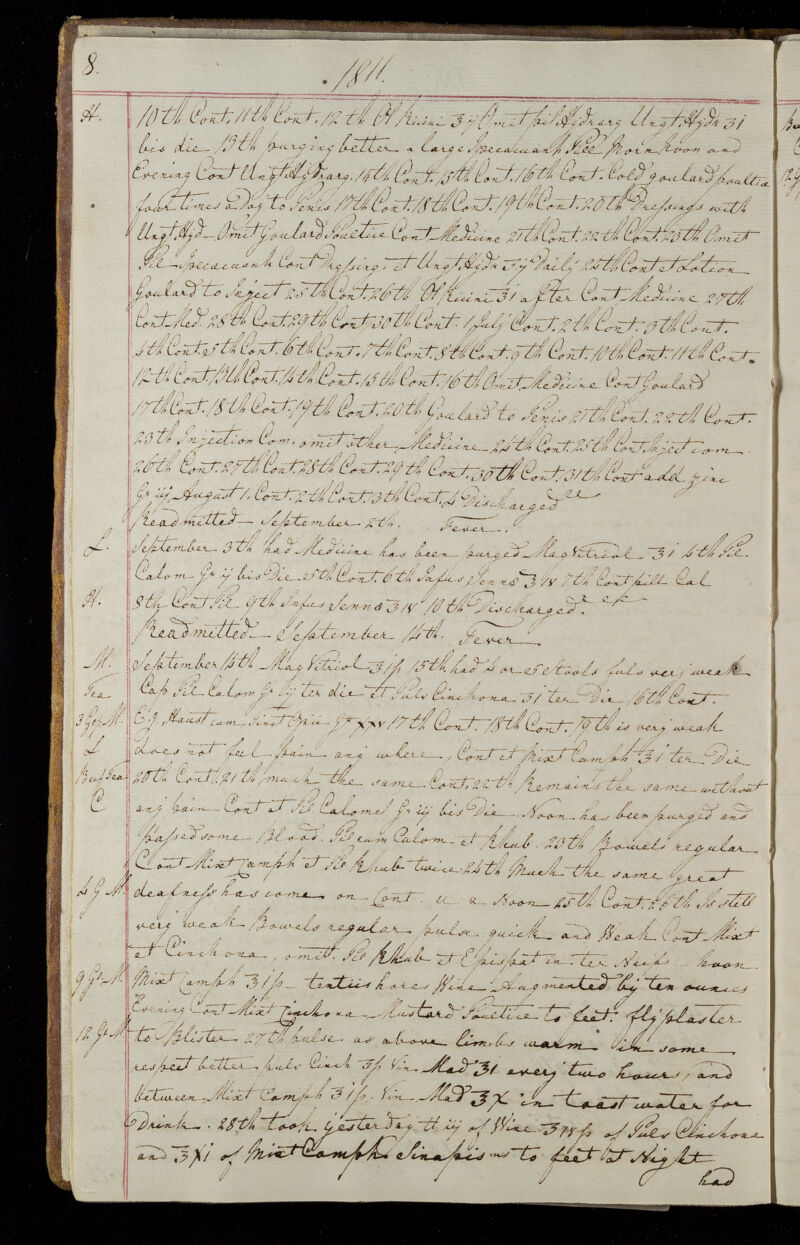 8.
1811.
H. 10th Cont. 11th Cont. 12th Ol Ricini ℥ij Omit pil Hidrarg Ungt Hydr ℥i
bis die 13th purging better a large Ipecacuanh Pill Morn Noon and
Evening Cont Ungt Hydrarg. 14th Cont. 15th Cont. 16th Cont. Cold goulard poultice
four times a Day to Penis 17th Cont. 18th Cont. 19th Cont. 20th Dressings with
Ungt Hyd - Omit Goulard Poultice Cont Medicine 21th Cont. 22th Cont. 23th Omit
Pil Ipecacuanh Cont Dressings et Ungt Hydr ℥ij Daily 24th Cont et Lotion
Goulard to Inject 25th Cont. 26th Ol Ricini ℥i after Cont Medicine 27th
Cont Med. 28th Cont. 29th Cont. 30th Cont. 1 July Cont. 2th Cont. 3th Cont.
4th Cont. 5th Cont. 6th Cont. 7th Cont. 8th Cont. 9th Cont. 10th Cont. 11th Cont.
12th Cont. 13th Cont. 14th Cont. 15th Cont. 16th Omit Medicine Cont Goulard
17th Cont. 18th Cont. 19th Cont. 20th Goulard to Penis 21th Cont. 22th Cont.
23th Injection Com. omit other Medicine 24th Cont. 25th Cont Inject com
26th Cont. 27th Cont. 28th Cont. 29th Cont. 30th Cont. 31th Cont add zinc
Gr iij August 1. Cont. 2th Cont. 3th Cont. 4 Discharged
Readmitted - September 2th. Fever.
L. September 3th had Medicine has been purged Mag Vitreol ℥i 4th Pil
Calom Gr ij bis Die 5th Cont. 6th Infus Senna ℥iv 7th Cont pill Cal
H. 8th Cont Pil 9th Infus Senna ℥iv 10th Discharged.
Readmitted - September 14th. Fever
M. September 14th Mag Vitriol ℥iß 15th had 4 or 5 Stools fuls very weak
Tea Cap Pil Calom Gr iij ter die et Puls Cinchona ℥i ter Die 16th Cont.
M. Haust cum Tinct Opii Gtt xxv 17th Cont. 18th Cont. 19th is very weak
L does not feel pain any where, Cont et Mixt Camph ℥i ter Die
Beef Tea 20th Cont. 21th much the same Cont. 22th Remains the same without
C any pain Cont et Pil Calomel Gr iij bis Die Noon has been purged and
passed some Blood. Pil cum Calom et Rhub. 23th Bowels regular
Cont Mixt Camph et Pil Rhub twice 24th Much the same great
4 G M. deafness has come on Cont. u u Noon 25th Cont. 26th Is still
very weak Bowels regular pulse quick and Weak Cont Mixt
et Cinchona, omit Pil Rhub et Epispast in ter Necks - noon
9 Gs M. Mixt Camph ℥iß - tentiis hares Wine Augmented by ten ounces
Evening Cont Mixt Cinchona - Mustard Poultice to feet. fly plaster
12 Gs M to Blister 27th pulse as above limbs warm in some
respect better puls Cinch ℥ß Vin Mad ℥i every two hours, and
between Mixt Camph ℥iß. Vin Mad ℥X in toast water for
Drink. 28th took yesterday tt ij of Wine ℥ivß of Puls Cinchona
and ℥Xi of Mixt Camph. Sinapisms to feet at Night
had